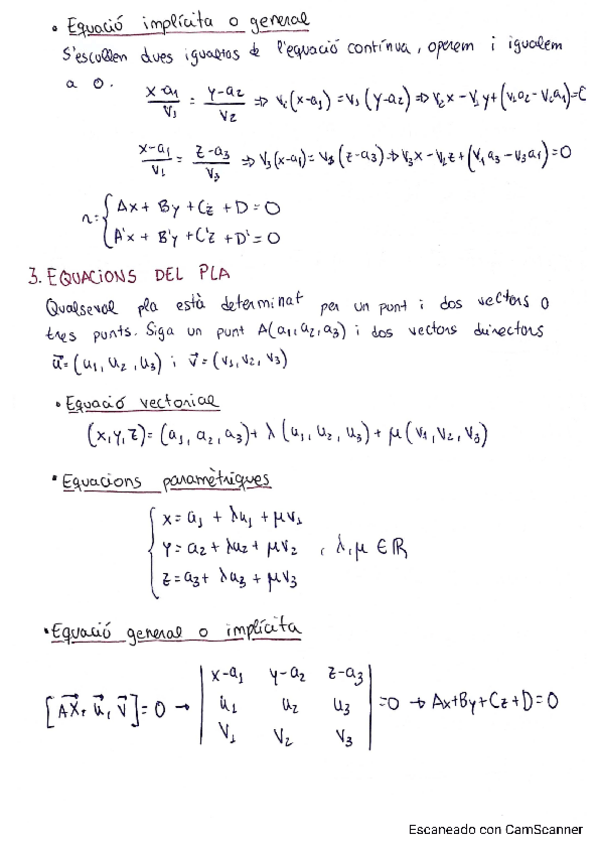 • Equació implícita o general
S'escullen dues igualtats de l'equació contínua, operem i igualem
a 0. x-a₁/v₁ = y-a₂/v₂ ⇒ v₂(x-a₁) = v₁(y-a₂) ⇒ v₂x - v₁y + (v₁a₂ - v₂a₁) = 0
x-a₁/v₁ = z-a₃/v₃ ⇒ v₃(x-a₁) = v₁(z-a₃) ⇒ v₃x - v₁z + (v₁a₃ - v₃a₁) = 0
r = { Ax + By + Cz + D = 0
A'x + B'y + C'z + D' = 0
3. EQUACIONS DEL PLA
Qualsevol pla està determinat per un punt i dos vectors o
tres punts. Siga un punt A(a₁, a₂, a₃) i dos vectors directors
u⃗ = (u₁, u₂, u₃) i v⃗ = (v₁, v₂, v₃)
• Equació vectorial
(x, y, z) = (a₁, a₂, a₃) + λ (u₁, u₂, u₃) + μ (v₁, v₂, v₃)
• Equacions paramètriques
x = a₁ + λu₁ + μv₁
y = a₂ + λu₂ + μv₂ , λ, μ ∈ ℝ
z = a₃ + λu₃ + μv₃
• Equació general o implícita
x-a₁ y-a₂ z-a₃
[AX⃗, u⃗, v⃗] = 0 → | u₁ u₂ u₃ | = 0 → Ax+By+Cz+D=0
v₁ v₂ v₃
Escaneado con CamScanner